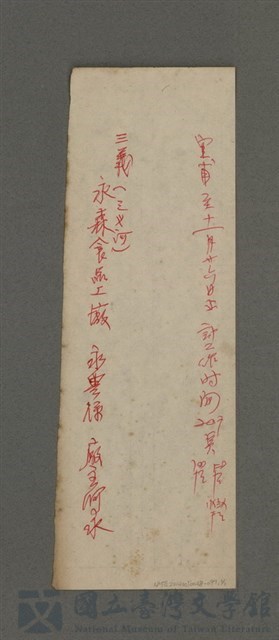 至十一月廿六日止 計工作时间207 奌
三義(三义河)
永森食品工廠 永豊禄 廠主河永
國立臺灣文學館
National Museum of Taiwan Literature